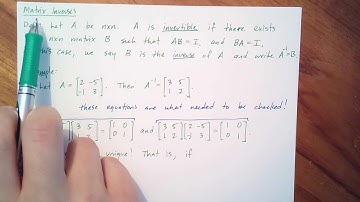 Matrix Inverses
Let A be nxn. A is invertible if there exists
nxn matrix B such that AB=I, and BA=I.
case, we say B is the inverse of A and write A⁻¹=B.
A = [2 -5; -1 3]. Then A⁻¹ = [3 5; 1 2]
these equations are what needed to be checked!
[3 5; 1 2] = [1 0; 0 1] and [3 5; 1 2][2 -5; -1 3] = [1 0; 0 1]
unique! That is, if